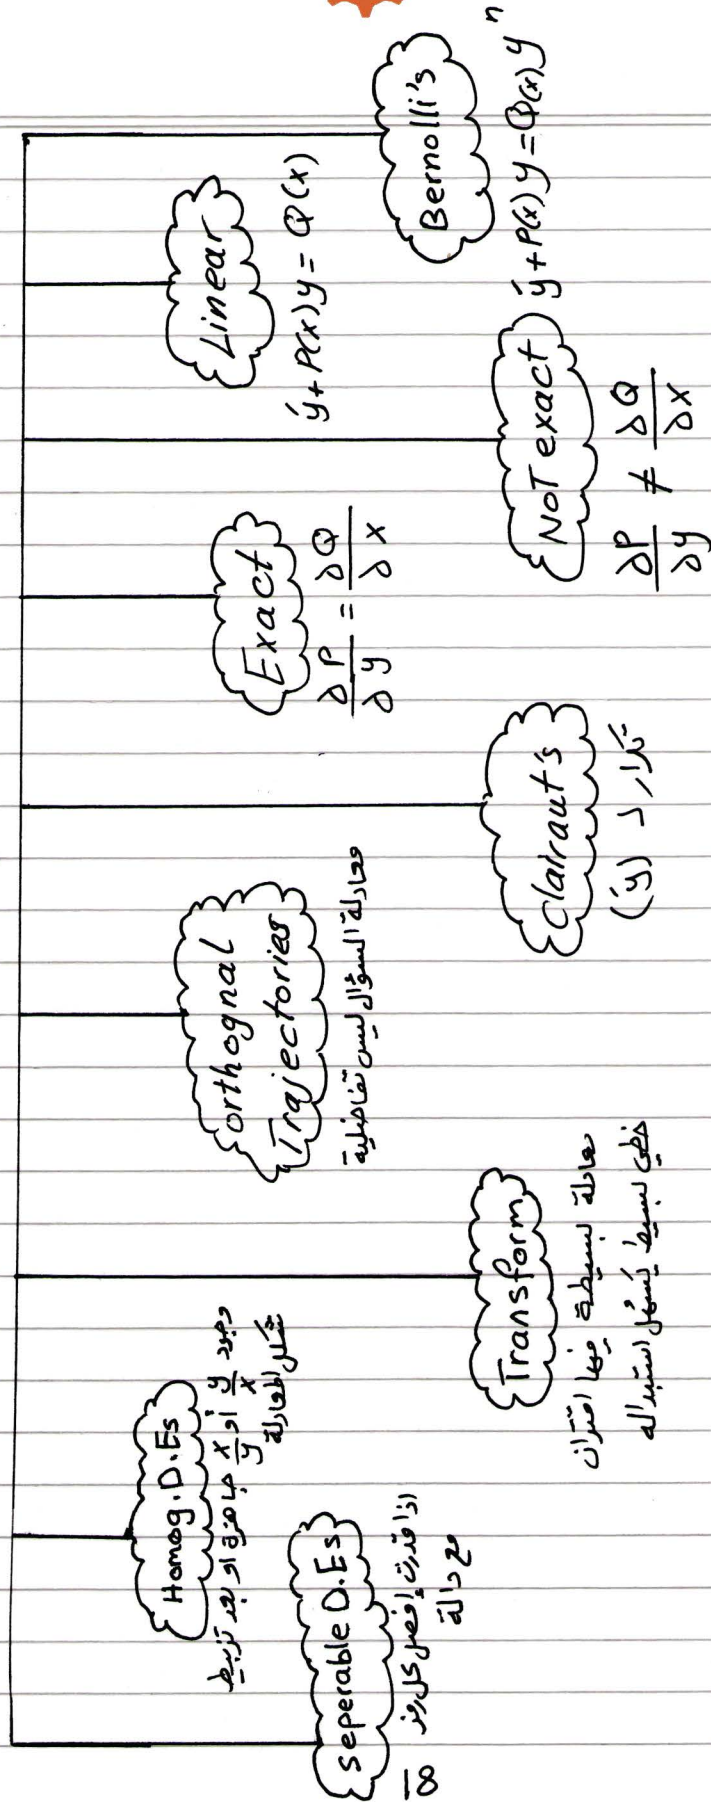 seperable D.Es
اذا قدرت إفصل كل رمز
مع دالة
Homog. D.Es
وجود y/x أو x/y جاهزة او بعد تزبيط
شكل المعادلة
Transform
معادلة بسيطة فيها اقتران
خطي بسيط يسهل استبداله
orthognal
Trajectories
معادلة السؤال ليس تفاضلية
Clairaut's
تكرار لـ (y')
Exact
∂P/∂y = ∂Q/∂x
NoT exact
∂P/∂y ≠ ∂Q/∂x
Linear
y' + P(x) y = Q(x)
Bernolli's
y' + P(x) y = Q(x) y^n
18